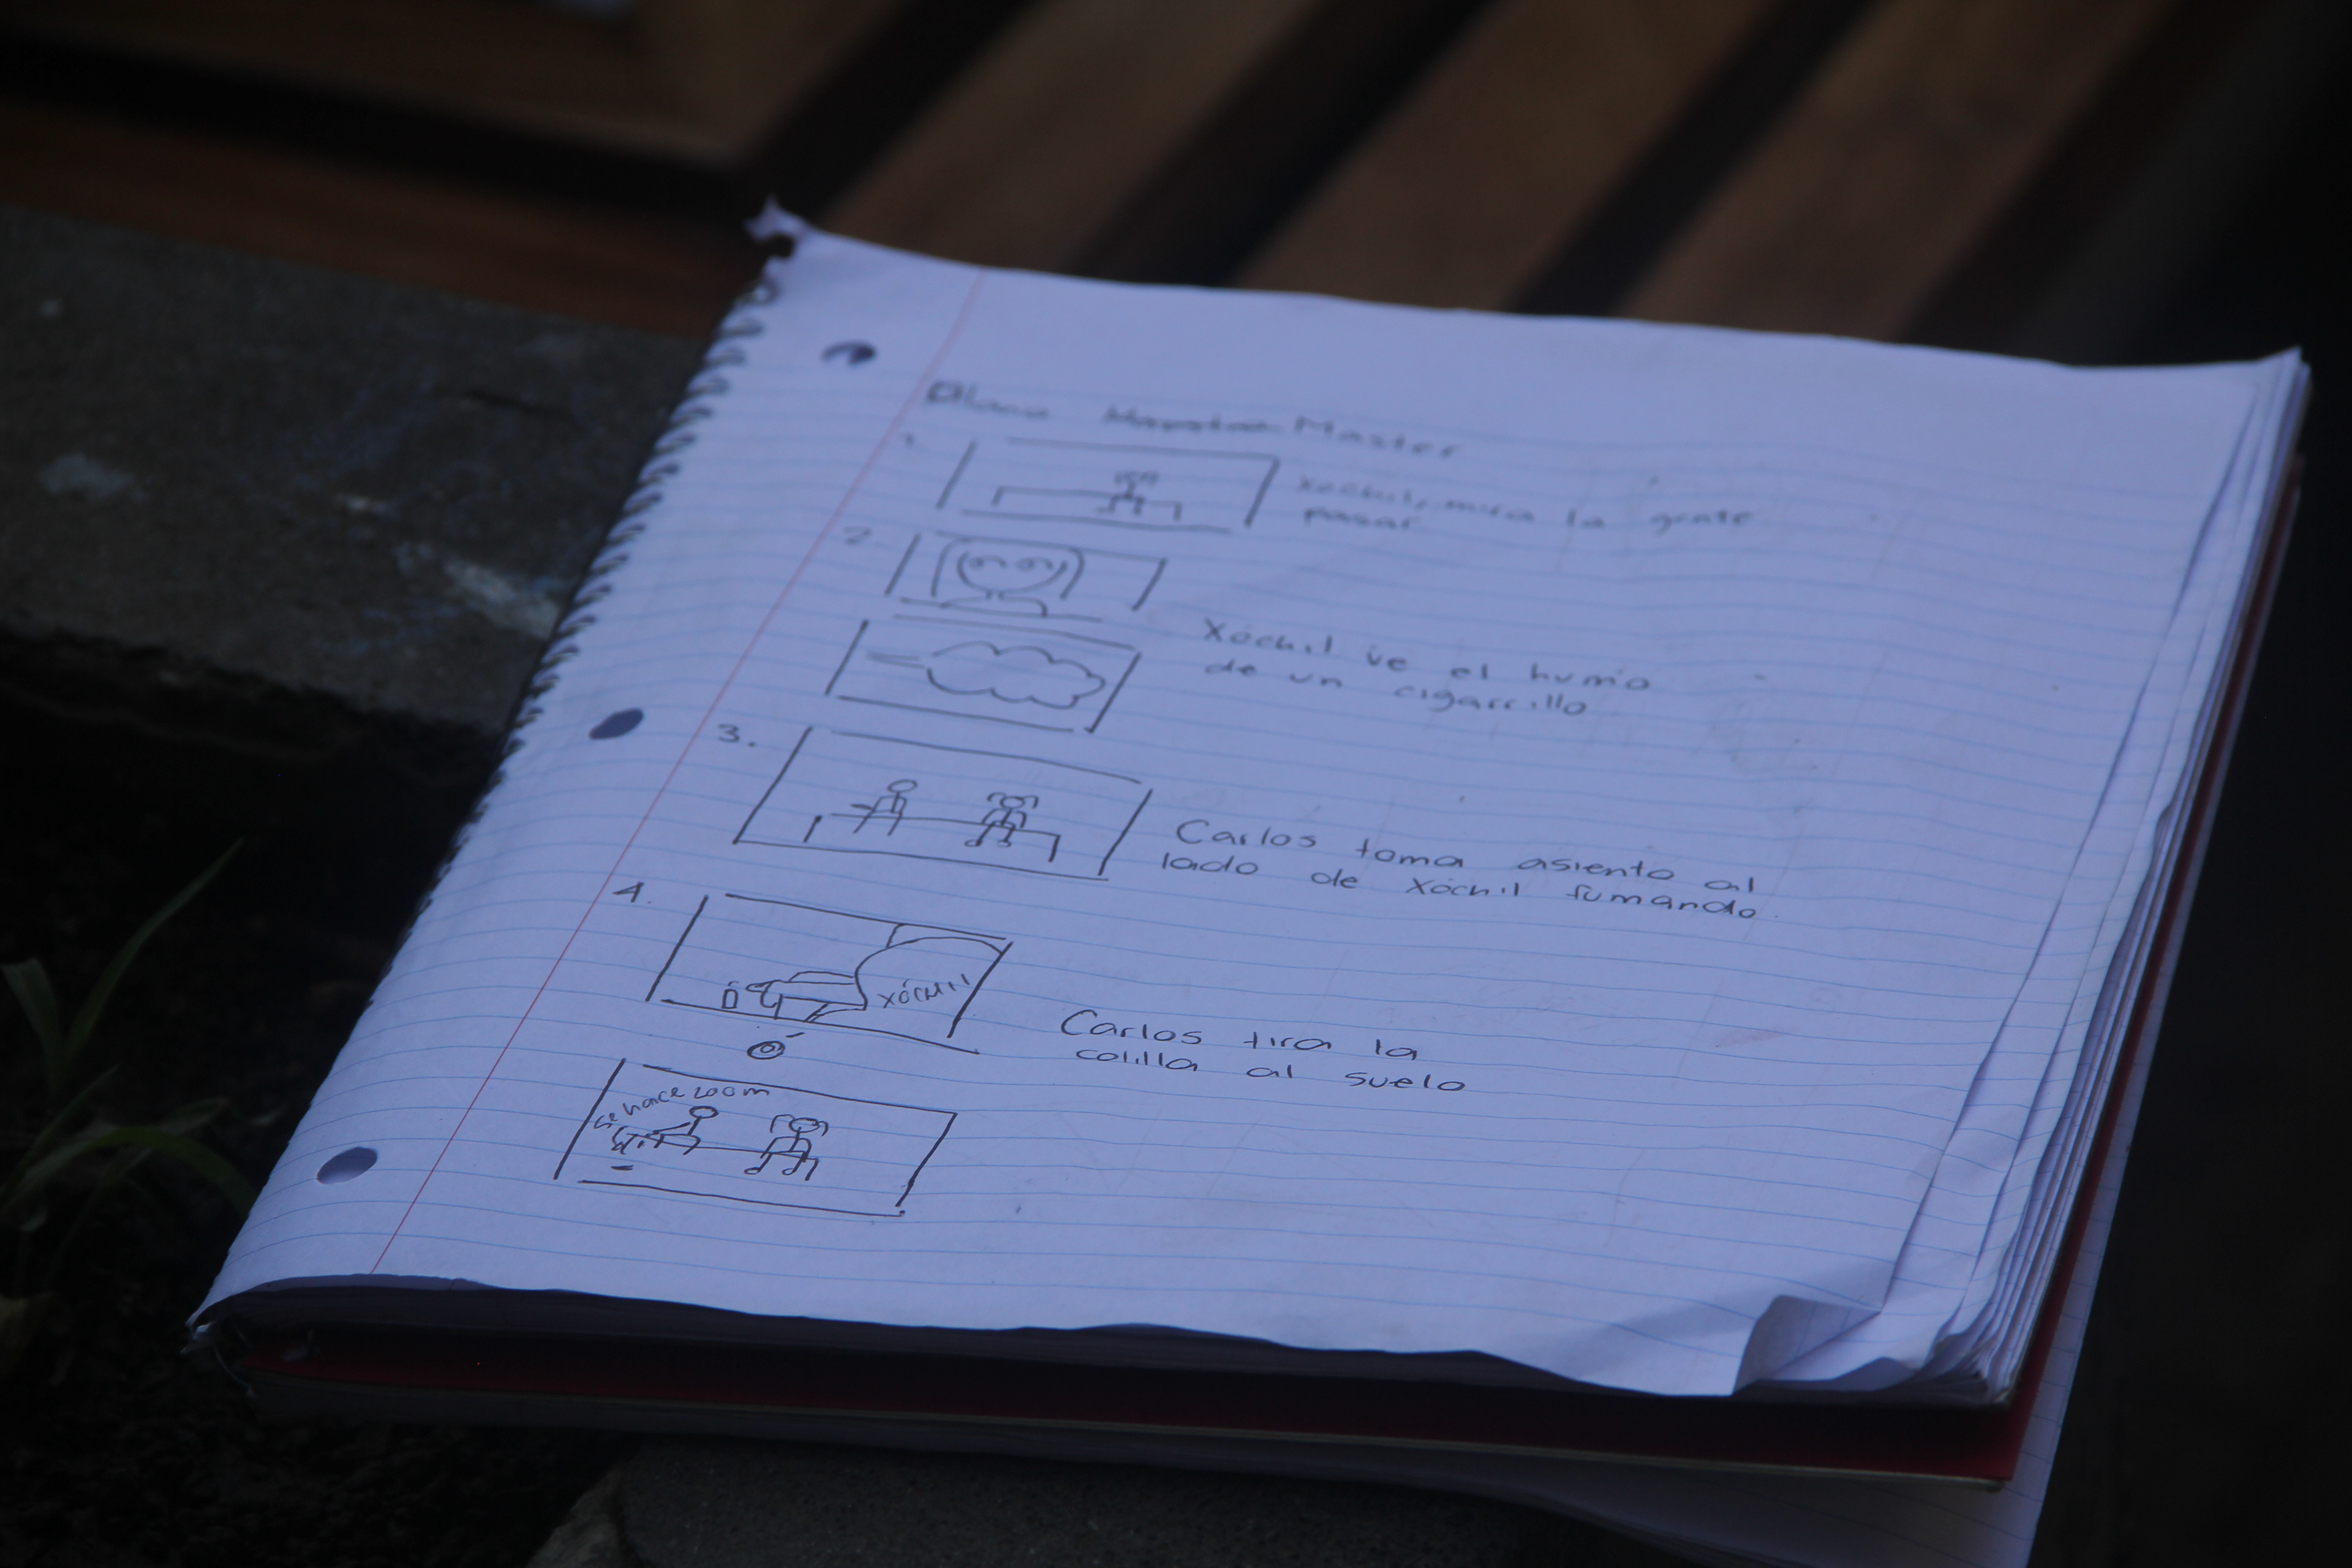 Master
1.
Xóchil, mira la gente
pasar
2.
Xóchil ve el humo
de un cigarrillo
3.
Carlos toma asiento al
lado de Xóchil fumando.
4.
XÓCHIL
Carlos tira la
colilla al suelo
se hace zoom